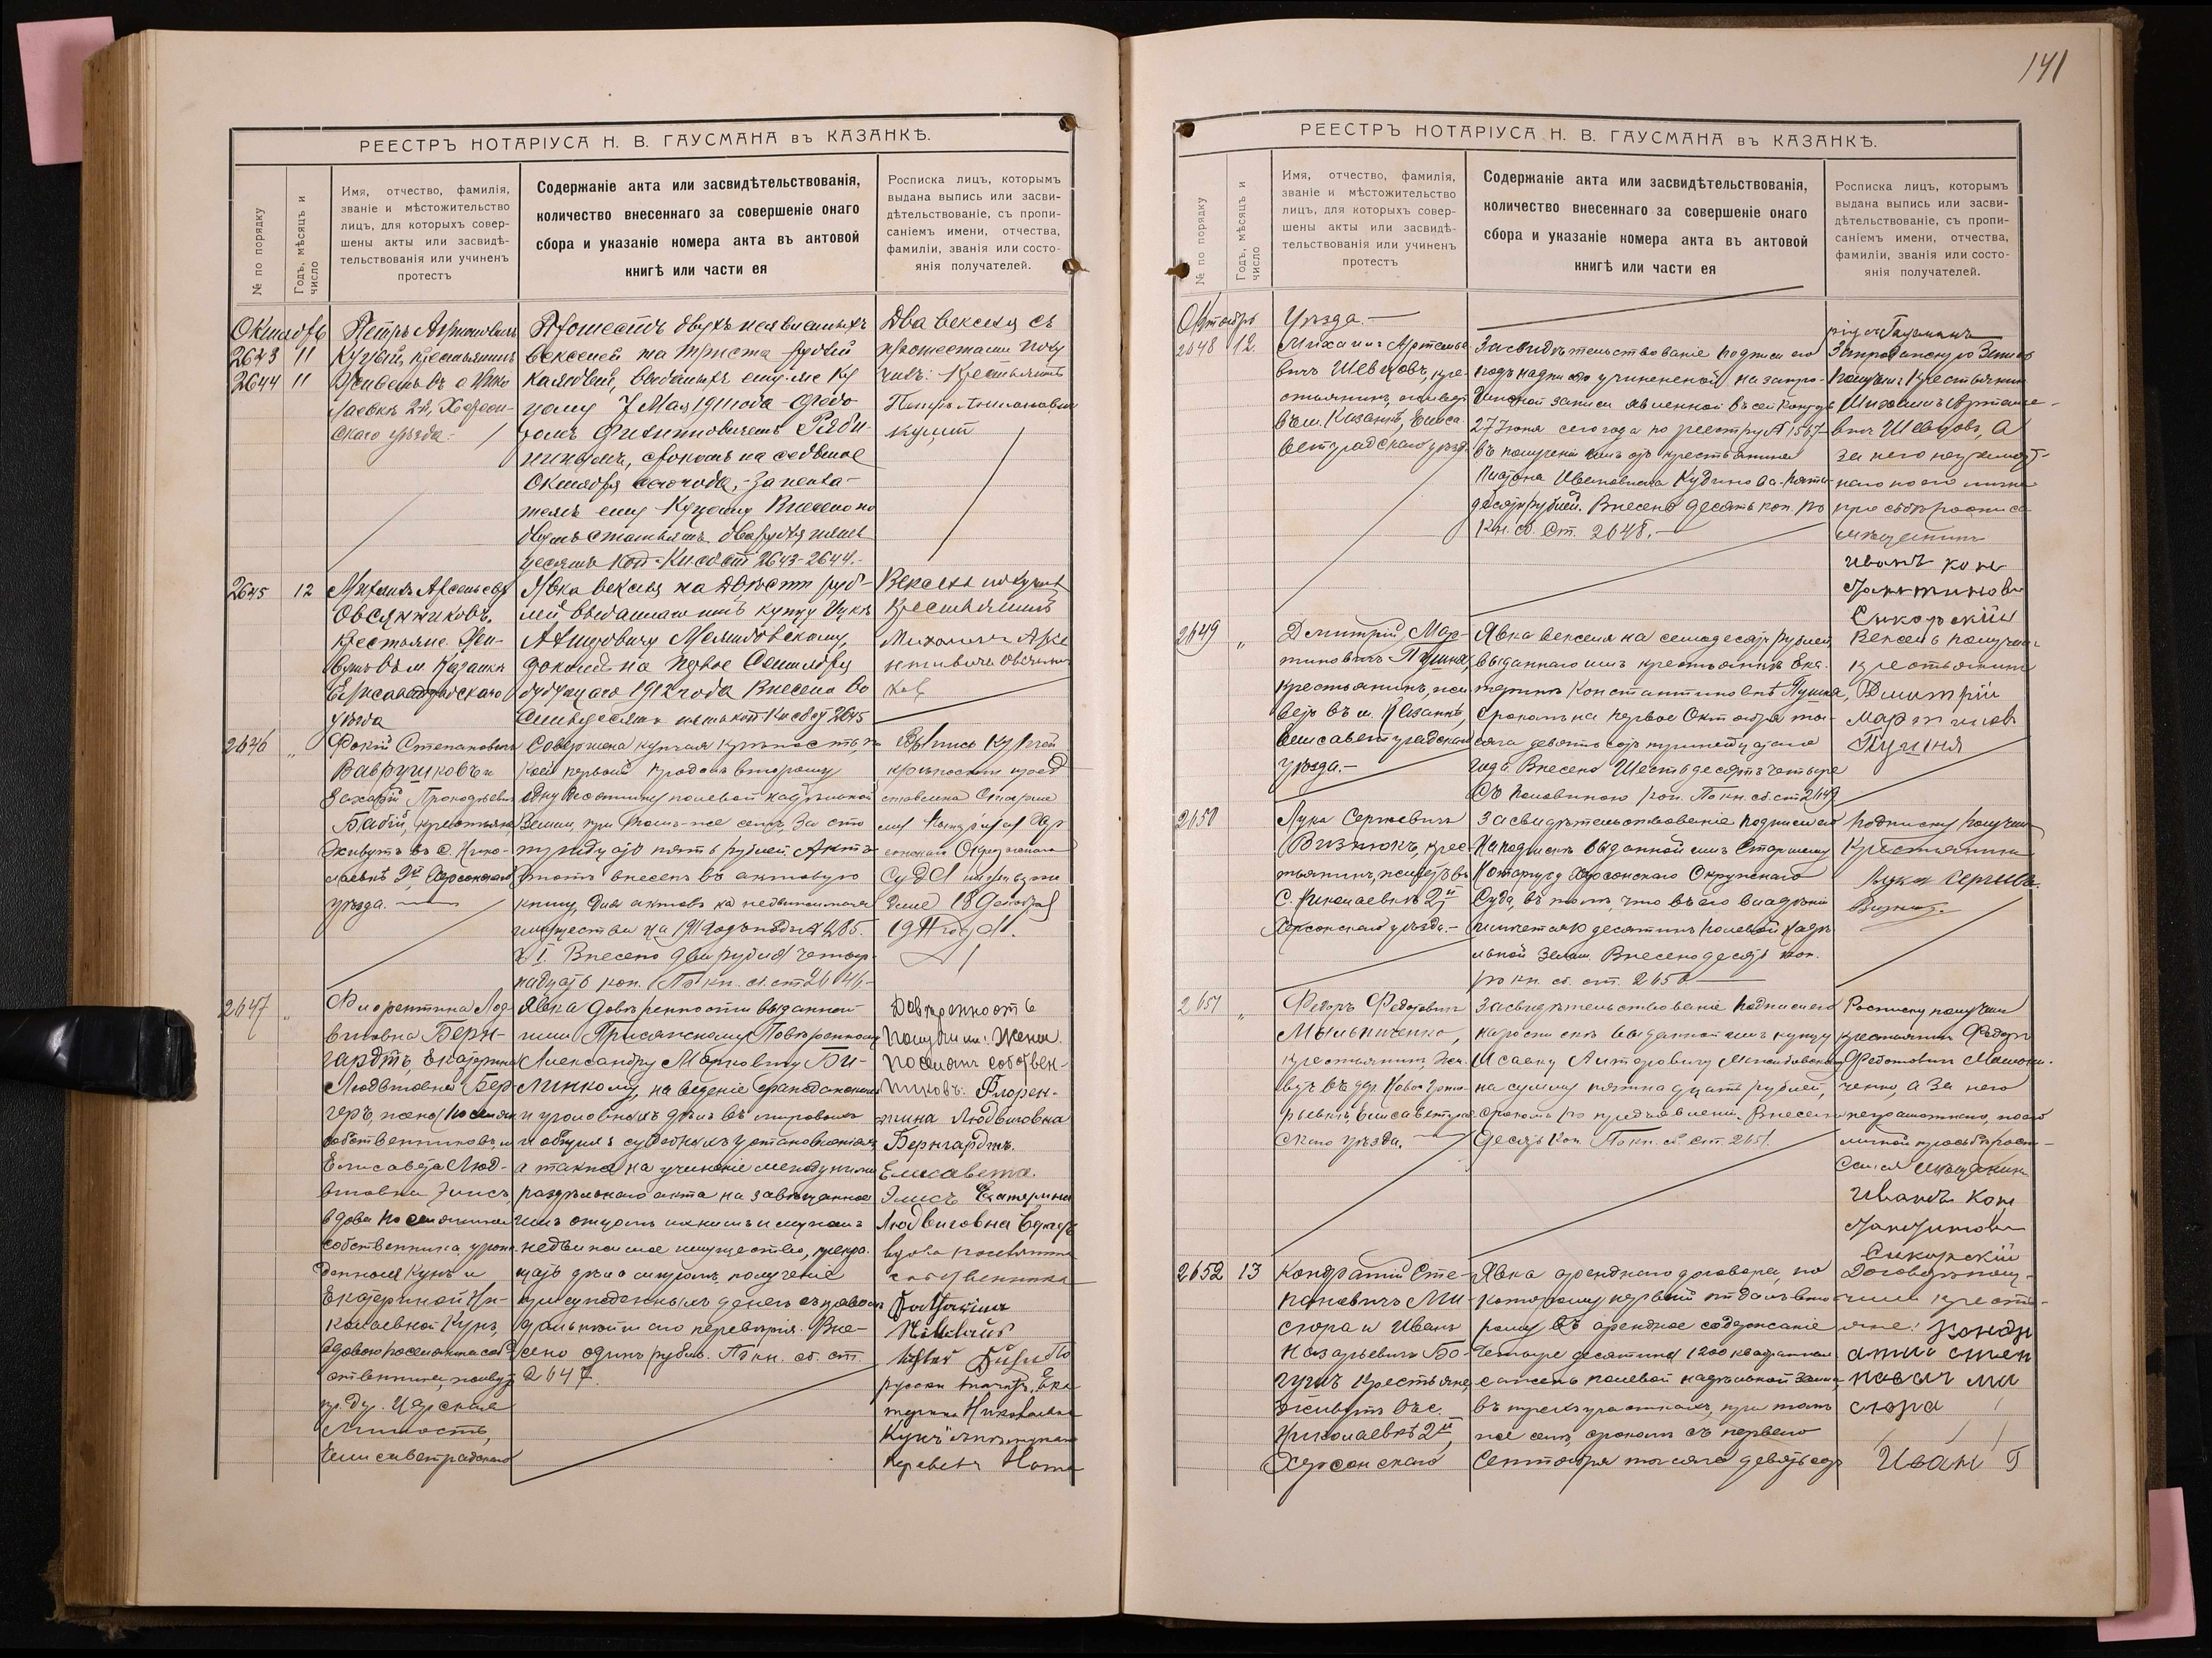 141
РЕЕСТРЪ НОТАРІУСА Н. В. ГАУСМАНА въ КАЗАНКѢ.
№ по порядку
Годъ, мѣсяцъ и
число
Имя, отчество, фамилія,
званіе и мѣстожительство
лицъ, для которыхъ совер-
шены акты или засвидѣ-
тельствованія или учиненъ
протестъ
Содержаніе акта или засвидѣтельствованія,
количество внесеннаго за совершеніе онаго
сбора и указаніе номера акта въ актовой
книгѣ или части ея
Росписка лицъ, которымъ
выдана выпись или засви-
дѣтельствованіе, съ пропи-
саніемъ имени, отчества,
фамиліи, званія или состо-
янія получателей.
Октябрь
2643 11
2644 11
Петръ
Куцый, крестьянинъ
лаевкѣ 2й, Херсон-
скаго уѣзда.
Протестъ двухъ
векселей на триста рублей
каждый, выданныхъ ему-же Ку
цому 7 Мая 1911 года
срокомъ на седьмое
Октября сего года,
ему Куцому Внесено по
двумъ статьямъ два рубля
десятъ коп. Кн сб ст 2643-2644.
Два векселя съ
протестами полу
чилъ: Крестьянинъ
Петръ
Куцый
2645 12
Михаилъ
Овсянниковъ,
крестьяне. Жи-
вутъ въ м Казанкѣ
Елисаветградскаго
уѣзда
Явка векселя на двѣсти руб-
лей выданнаго имъ купцу
срокомъ на первое Сентября
будущаго 1912 года Внесено во
семьдесятъ пять коп Кн сб ст 2645
Вексель получилъ
Крестьянинъ
Михаилъ
Овсянни
ковъ
2646 "
Фокій Степановичъ
Ваврушковъ и
Захарій Прокофьевичъ
Бабій, крестьяне
Живутъ въ с. Нико-
лаевкѣ 2й, Херсонскаго
уѣзда.
Совершена купчая крѣпость, по
коей первый продалъ второму
одну десятину полевой надѣльной
Земли, при томъ-же селѣ, За сто
тридцать пять рублей. Актъ
этотъ внесенъ въ актовую
книгу для актовъ на недвижимыя
имущества на 1911 годъ подъ № 285.
ч I. Внесено два рубля четыр-
надцать коп. По кн. сб. ст 2646.
Выпись купчей
крѣпости пред
ставлена Старше
му Нотаріусу Хер
сонскаго Окружнаго
Суда
1911 года.
2647 "
Флорентина Люд-
виговна Берн-
гардтъ, Екатерина
Людвиговна Бер
геръ, жены поселянъ
собственниковъ, и
Елисавета Люд-
виговна Элисъ,
вдова поселянина
собственника, урож-
денныя Кунъ и
Екатериной Ни-
колаевной Кунъ,
вдовою поселянина соб
ственника, живутъ
пр. др. Царская
Милость,
Елисаветградскаго
Явка довѣренности выданной
ими Присяжному Повѣренному
Александру Марковичу Би-
линкому, на веденіе гражданскихъ
и уголовныхъ дѣлъ въ мировыхъ
и общихъ судебныхъ установленіяхъ,
а также на учиненіе между ними
раздѣльнаго акта на завѣщанное
имъ отцомъ ихнимъ и мужемъ
недвижимое имущество,
дѣло миромъ, полученіе
присужденныхъ денегъ съ правомъ
дальнѣйшаго перевѣрія. Вне-
сено одинъ рубль. По кн. сб. ст.
2647.
Довѣренность
получили: Жены
поселянъ собствен-
никовъ: Флорен-
тина Людвиговна
Бернгардтъ.
Елисавета.
Элисъ Екатерина
Людвиговна Бергеръ
вдова поселянина
собственника
По
русски значитъ: Ека
терина Николаевна
Кунъ
перевелъ Нота
РЕЕСТРЪ НОТАРІУСА Н. В. ГАУСМАНА въ КАЗАНКѢ.
№ по порядку
Годъ, мѣсяцъ и
число
Имя, отчество, фамилія,
званіе и мѣстожительство
лицъ, для которыхъ совер-
шены акты или засвидѣ-
тельствованія или учиненъ
протестъ
Содержаніе акта или засвидѣтельствованія,
количество внесеннаго за совершеніе онаго
сбора и указаніе номера акта въ актовой
книгѣ или части ея
Росписка лицъ, которымъ
выдана выпись или засви-
дѣтельствованіе, съ пропи-
саніемъ имени, отчества,
фамиліи, званія или состо-
янія получателей.
Октябрь
Уѣзда.
ріусъ Гаусманъ
2648 12.
Михаилъ Артемье-
вичъ Шевцовъ, кре-
стьянинъ, живетъ
въ м. Казанкѣ, Елиса
ветградскаго уѣзда
Засвидѣтельствованіе подписи его
подъ надписью учиненной на запро-
дажной записи явленной въ сей конторѣ
27 Іюня сего года по реестру № 1567
въ полученіи имъ отъ крестьянина
Платона Ивановича Кудинова пять
десятъ рублей. Внесено десять коп. По
кн. сб. ст. 2648.
Запродажную Запись
Получилъ: крестьянинъ
Михаилъ Артемье-
вичъ Шевцовъ, а
за него неграмот-
наго по его личной
просьбѣ росписался
мѣщанинъ
Иванъ Кон
стантиновъ
Сикорскій
2649 "
Дмитрій Мар-
тиновичъ Пушня,
крестьянинъ, жи
ветъ въ м. Казанкѣ,
Елисаветградскаго
уѣзда.
Явка векселя на семьдесятъ рублей,
выданнаго имъ крестьянкѣ Ека-
теринѣ Константиновнѣ Пушня,
срокомъ на первое Октября ты-
сяча девятьсотъ тринадцатаго
года. Внесено Шестьдесятъ четыре
съ половиною коп. По кн. сб. ст 2649
Вексель получилъ
крестьянинъ
Дмитрій
Мартинов
Пушня
2650
Лука Сергѣевичъ
Визнюкъ, крес-
тьянинъ, живетъ въ
с. Николаевкѣ 2й
Херсонскаго уѣзда.
Засвидѣтельствованіе подписи его
На подпискѣ выданной имъ Старшему
Нотаріусу Херсонскаго Окружнаго
Суда, въ томъ, что въ его владѣніи
десятинъ полевой надѣ
льной земли. Внесено десять коп.
по кн. сб. ст. 2650
Подписку получилъ
Крестьянинъ
Лука Сергѣев.
2651 "
Федоръ Федотовичъ
Мыльниченко,
крестьянинъ, жи-
ветъ въ др. Ново-
Елисаветград
скаго уѣзда.
Засвидѣтельствованіе подписи его
на роспискѣ выданной имъ купцу
на сумму пятнадцать рублей,
срокомъ по предъявленіи. Внесено
десять коп. По кн. сб. ст. 2651.
Росписку получилъ
крестьянинъ Федоръ
Федотовичъ Мыльни-
ченко, а За него
неграмотнаго, по его
личной просьбѣ роспи-
сался мѣщанинъ
Иванъ Кон
стантиновъ
Сикорскій
2652 13
Кондратій Сте-
пановичъ Ми-
сюра и Иванъ
Назарьевичъ Бо-
гунъ крестьяне,
живутъ въ с.
Николаевкѣ 2й,
Херсонскаго
Явка аренднаго договора, по
которому первый отдалъ вто
рому въ арендное содержаніе
Четыре десятины 1200 квадратныхъ
сажень полевой надѣльной земли,
въ трехъ участкахъ, при томъ
же селѣ, срокомъ съ перваго
Сентября тысяча девятьсотъ
Договоръ полу-
чили кресть-
яне: Конды
атий Степ
новач ми
сюра
Иван Б